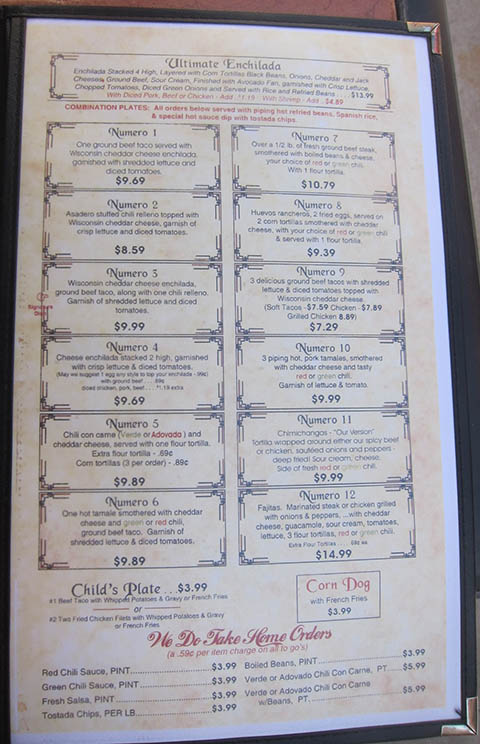 Ultimate Enchilada
Enchilada Stacked 4 High, Layered with Corn Tortillas Black Beans, Onions, Cheddar and Jack
Cheeses, Ground Beef, Sour Cream, Finished with Avocado Fan, garnished with Crisp Lettuce,
Chopped Tomatoes, Diced Green Onions and Served with Rice and Refried Beans .... $13.99
With Diced Pork, Beef or Chicken - Add - $1.19 - With Shrimp - Add - $4.89
COMBINATION PLATES: All orders below served with piping hot refried beans, Spanish rice,
& special hot sauce dip with tostada chips.
Numero 1
One ground beef taco served with
Wisconsin cheddar cheese enchilada,
garnished with shredded lettuce and
diced tomatoes.
$9.69
Numero 2
Asadero stuffed chili relleno topped with
Wisconsin cheddar cheese, garnish of
crisp lettuce and diced tomatoes.
$8.59
Numero 3
Wisconsin cheddar cheese enchilada,
ground beef taco, along with one chili relleno.
Garnish of shredded lettuce and diced
tomatoes.
$9.99
Signature
Dish
Numero 4
Cheese enchilada stacked 2 high, garnished
with crisp lettuce & diced tomatoes.
(May we suggest 1 egg any style to top your enchilada - .99¢)
with ground beef . . . .89¢
diced chicken, pork, beef . . $1.19 extra
$9.69
Numero 5
Chili con carne (Verde or Adovado ) and
cheddar cheese, served with one flour tortilla.
Extra flour tortilla - .69¢
Corn tortillas (3 per order) - .89¢
$9.89
Numero 6
One hot tamale smothered with cheddar
cheese and green or red chili,
ground beef taco. Garnish of
shredded lettuce & diced tomatoes.
$9.89
Numero 7
Over a 1/2 lb. of fresh ground beef steak,
smothered with boiled beans & cheese,
your choice of red or green chili.
With 1 flour tortilla.
$10.79
Numero 8
Huevos rancheros, 2 fried eggs, served on
2 corn tortillas smothered with cheddar
cheese, with your choice of red or green chili
& served with 1 flour tortilla.
$9.39
Numero 9
3 delicious ground beef tacos with shredded
lettuce & diced tomatoes topped with
Wisconsin cheddar cheese.
(Soft Tacos -$7.59 Chicken -$7.89
Grilled Chicken 8.89)
$7.29
Numero 10
3 piping hot, pork tamales, smothered
with cheddar cheese and tasty
red or green chili.
Garnish of lettuce & tomato.
$9.99
Numero 11
Chimichangas - "Our Version"
Tortilla wrapped around either our spicy beef
or chicken, sautéed onions and peppers -
deep fried! Sour cream, cheese,
Side of fresh red or green chili.
$9.99
Numero 12
Fajitas. Marinated steak or chicken grilled
with onions & peppers, ...with cheddar
cheese, guacamole, sour cream, tomatoes,
lettuce, 3 flour tortillas, red or green chili.
Extra Flour Tortillas . . . . .69¢ ea.
$14.99
Child's Plate ...$3.99
#1 Beef Taco with Whipped Potatoes & Gravy or French Fries
or
#2 Two Fried Chicken Filets with Whipped Potatoes & Gravy
or French Fries
Corn Dog
with French Fries
$3.99
We Do Take Home Orders
(a .59¢ per item charge on all to go's)
Red Chili Sauce, PINT........................$3.99
Green Chili Sauce, PINT.....................$3.99
Fresh Salsa, PINT..............................$3.99
Tostada Chips, PER LB......................$3.99
Boiled Beans, PINT............................$3.99
Verde or Adovado Chili Con Carne, PT ....$5.99
Verde or Adovado Chili Con Carne
w/Beans, PT. ....................$5.99